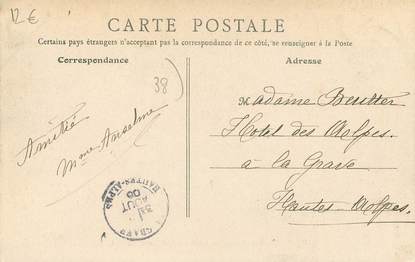 12 €
CARTE POSTALE
Certains pays étrangers n'acceptant pas la correspondance de ce côté, se renseigner à la Poste
Correspondance
Adresse
38
Amitié
Mme Anselme
Madame Beutter
Hotel des Alpes.
à la Grave
Hautes-Alpes.
LA GRAVE
31
AOUT
05
HAUTES-ALPES